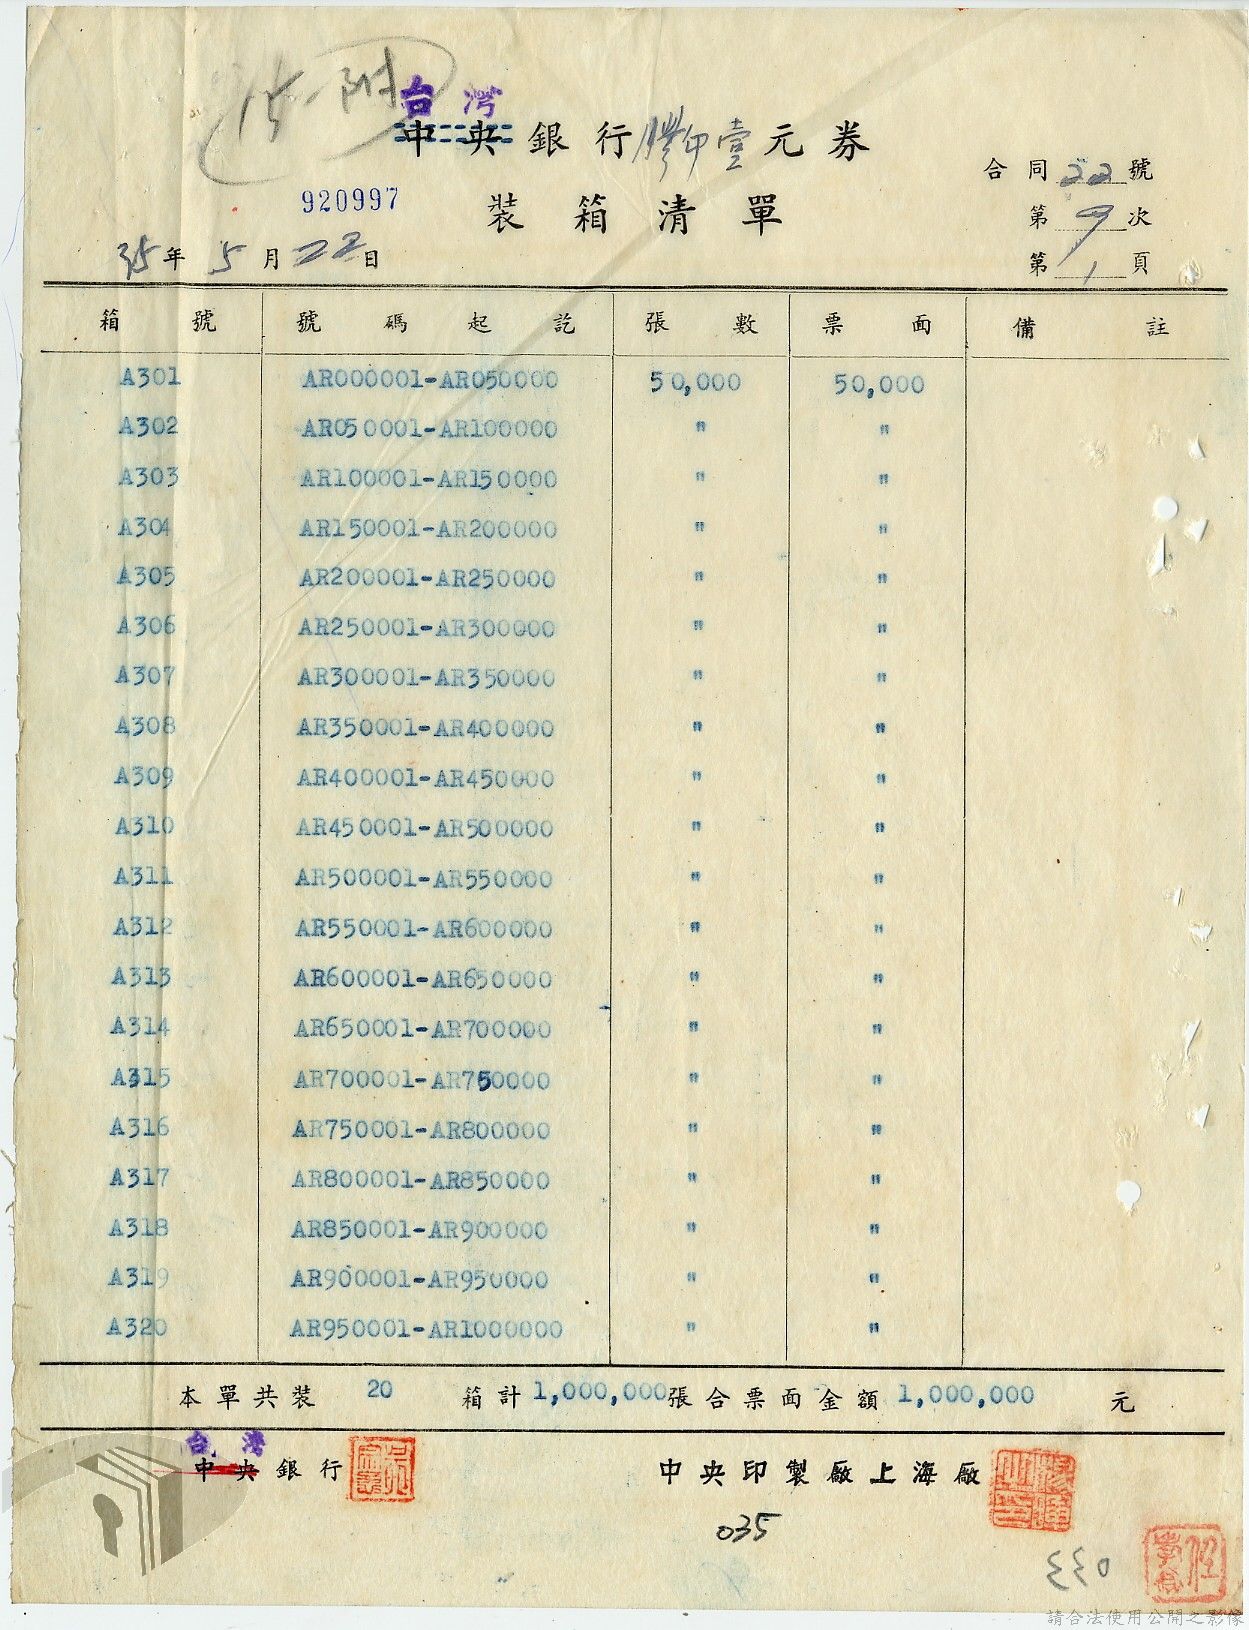 15-附
台灣
中央銀行膠印壹元券
合同22號
920997
裝箱清單
第9次
35年5月22日
第1頁
箱號 號碼起訖 張數 票面 備註
A301 AR000001-AR050000 50,000 50,000
A302 AR050001-AR100000 " "
A303 AR100001-AR150000 " "
A304 AR150001-AR200000 " "
A305 AR200001-AR250000 " "
A306 AR250001-AR300000 " "
A307 AR300001-AR350000 " "
A308 AR350001-AR400000 " "
A309 AR400001-AR450000 " "
A310 AR450001-AR500000 " "
A311 AR500001-AR550000 " "
A312 AR550001-AR600000 " "
A313 AR600001-AR650000 " "
A314 AR650001-AR700000 " "
A315 AR700001-AR750000 " "
A316 AR750001-AR800000 " "
A317 AR800001-AR850000 " "
A318 AR850001-AR900000 " "
A319 AR900001-AR950000 " "
A320 AR950001-AR1000000 " "
本單共裝 20 箱計 1,000,000 張合票面金額 1,000,000 元
台灣
中央銀行
中央印製廠上海廠
035
033
請合法使用公開之影像